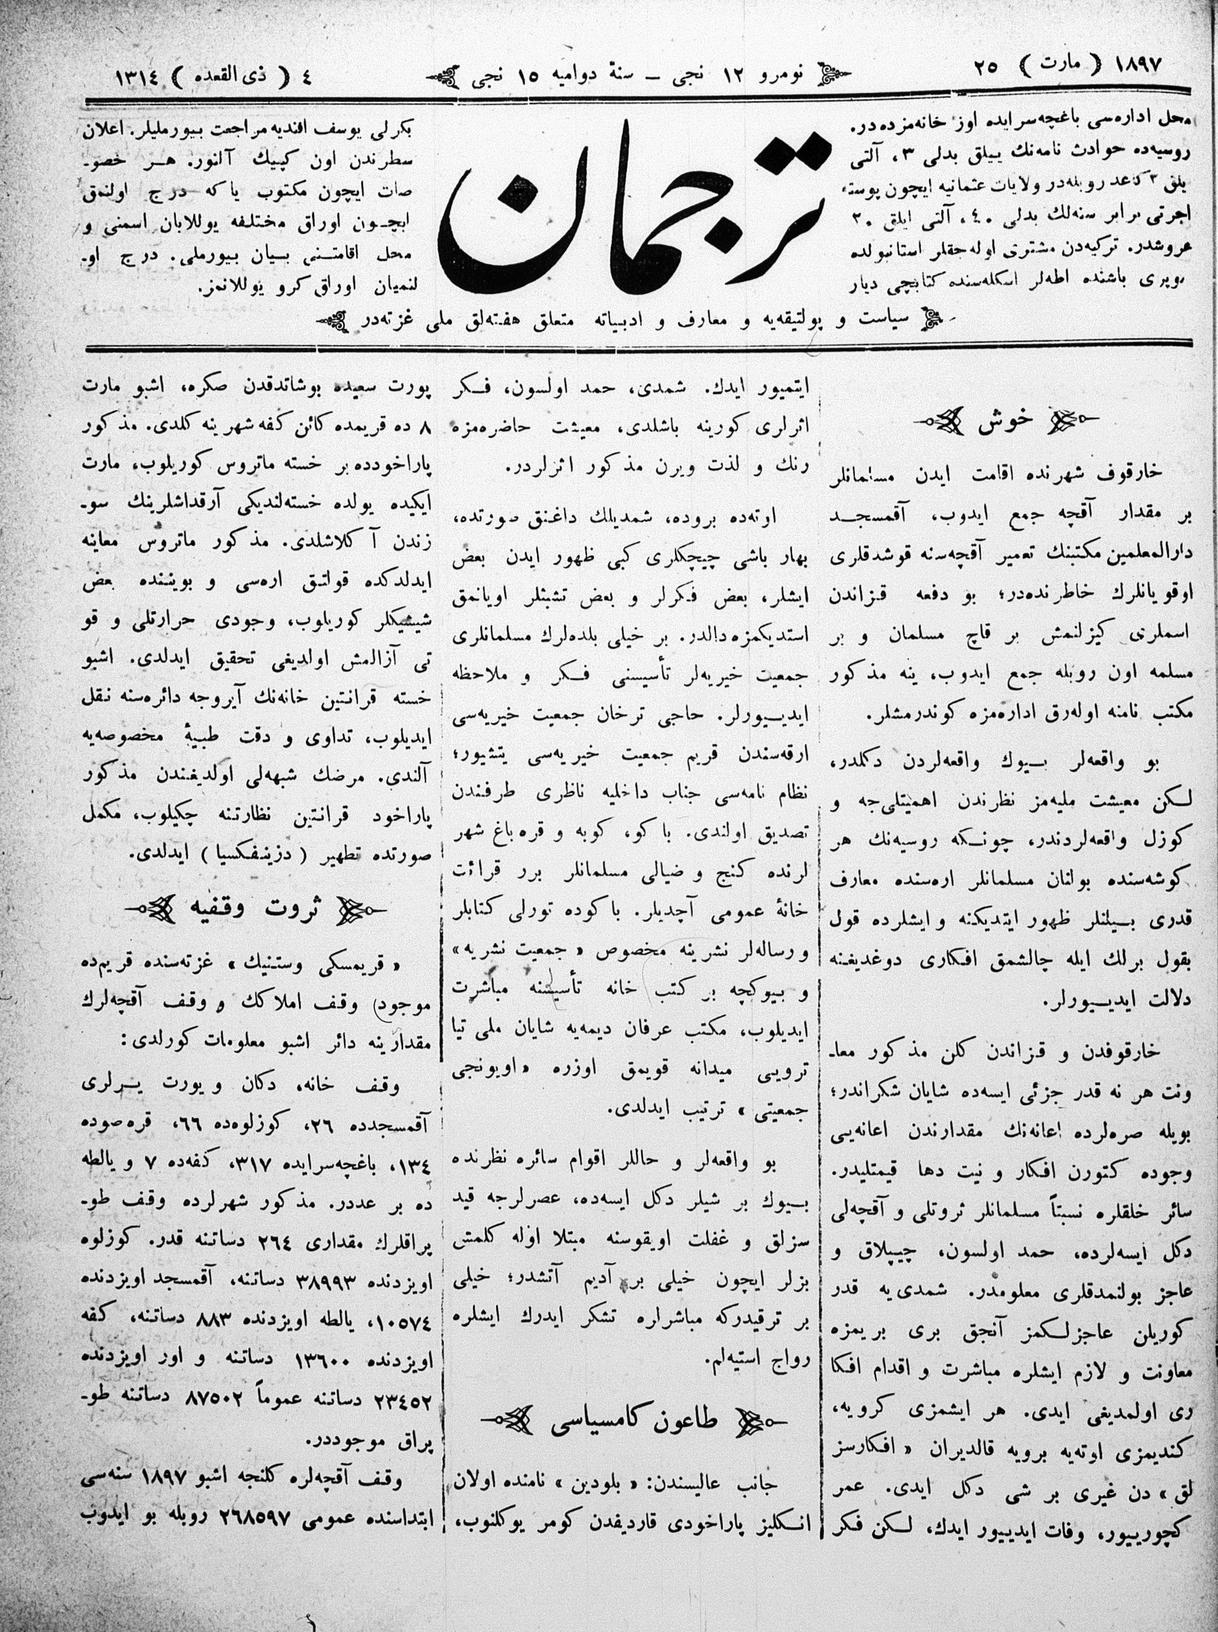 ١٨٩٧ ( مارت ) ٢٥
نومرو ١٢ نجی – سنهٔ دوامیه ١٥ نجی
٤ ( ذی القعده ) ١٣١٤
محل اداره‌سی باغچه‌سرایده اوز خانه‌مزده‌در.
روسیه‌ده حوادث نامه‌نك ییلق بدلی ٣، آلتی
یلق ٢ کاغد روبله‌در ولایات عثمانیه ایچون پوسته
اجرتی برابر سنه‌لك بدلی ٤٠، آلتی ایلق ٢٠
غروشدر. ترکیه‌دن مشتری اوله‌جقلر استانبولده
باشنده اطه‌لر اسکله‌سنده کتابچی دیار
ترجمان
بکرلی یوسف افندیه مراجعت بیورملیلر. اعلان
سطرندن اون کپیك آلنور. هر خصو-
صات ایچون مکتوب یاکه درج اولنمق
ایچون اوراق مختلفه یوللابان اسمنی و
محل اقامتنی بیان بیورملی. درج او-
لنمیان اوراق کرو یوللانمز.
سیاست و پولتیقه‌یه و معارف و ادبیاته متعلق هفته‌لق ملی غزته‌در
خوش
خارقوف شهرنده اقامت ایدن مسلمانلر
بر مقدار آقچه جمع ایدوب، آقمسجد
دارالمعلمین مکتبنك تعمیر آقچه‌سنه قوشدقلری
اوقویانلرك خاطرنده‌در؛ بو دفعه قزاندن
اسملری کیزلنمش بر قاچ مسلمان و بر
مسلمه اون روبله جمع ایدوب، ینه مذکور
مکتب نامنه اوله‌رق اداره‌مزه کوندرمشلر.
بو واقعه‌لر بیوك واقعه‌لردن دکلدر،
لکن معیشت ملیه‌مز نظرندن اهمیتلی‌جه و
کوزل واقعه‌لردندر، چونکه روسیه‌نك هر
کوشه‌سنده بولنان مسلمانلر اره‌سنده معارف
قدری بیلنلر ظهور ایتدیکنه و ایشلرده قول
بقول برلك ایله چالشمق افکاری دوغدیغنه
دلالت ایدییورلر.
خارقوفدن و قزاندن کلن مذکور معا-
ونت هر نه قدر جزئی ایسه‌ده شایان شکراندر؛
بویله صره‌لرده اعانه‌نك مقدارندن اعانه‌یی
وجوده کتورن افکار و نیت دها قیمتلیدر.
سائر خلقلره نسبتاً مسلمانلر ثروتلی و آقچه‌لی
دکل ایسه‌لرده، حمد اولسون، چیپلاق و
عاجز بولنمدقلری معلومدر. شمدی‌یه قدر
کوریلن عاجزلکمز آنجق بری بریمزه
معاونت و لازم ایشلره مباشرت و اقدام افکا
ری اولمدیغی ایدی. هر ایشمزی کرویه،
کندیمزی اوته‌یه برویه قالدیران « افکارسز
لق » دن غیری بر شی دکل ایدی. عمر
کچورییور، وفات ایدییور ایدك، لکن فکر
ایتمیور ایدك. شمدی، حمد اولسون، فکر
اثرلری کورینه باشلدی، معیشت حاضره‌مزه
رنك و لذت ویرن مذکور اثرلردر.
اوته‌ده بروده، شمدیلك داغنق صورتده،
بهار باشی چیچکلری کبی ظهور ایدن بعض
ایشلر، بعض فکرلر و بعض تشبثلر اویانمق
استدیکمزه دالدر. بر خیلی بلده‌لرك مسلمانلری
جمعیت خیریه‌لر تأسیسنی فکر و ملاحظه
ایدییورلر. حاجی ترخان جمعیت خیریه‌سی
ارقه‌سندن قریم جمعیت خیریه‌سی یتشیور؛
نظام نامه‌سی جناب داخلیه ناظری طرفندن
تصدیق اولندی. باکو، کوبه و قره‌باغ شهر
لرنده کنج و ضیالی مسلمانلر برر قرائت
خانهٔ عمومی آچدیلر. باکوده تورلی کتابلر
و رساله‌لر نشرینه مخصوص « جمعیت نشریه »
و بیوکچه بر کتب خانه تأسیسنه مباشرت
ایدیلوب، مکتب عرفان دیمه‌یه شایان ملی تیا
ترویی میدانه قویمق اوزره « اویونجی
جمعیتی » ترتیب ایدلدی.
بو واقعه‌لر و حاللر اقوام سائره نظرنده
بیوك بر شیلر دکل ایسه‌ده، عصرلرجه قید
سزلق و غفلت اویقوسنه مبتلا اوله کلمش
بزلر ایچون خیلی بر آدیم آتشدر؛ خیلی
بر ترقیدرکه مباشرلره تشکر ایدرك ایشلره
رواج استیه‌لم.
طاعون کامسیاسی
جانب عالیسندن: « بلودین » نامنده اولان
انکلیز پاراخودی قاردیفدن کومر یوکلنوب،
پورت سعیده بوشاتدقدن صکره، اشبو مارت
٨ ده قریمده کائن کفه شهرینه کلدی. مذکور
پاراخودده بر خسته ماتروس کوریلوب، مارت
ایکیده یولده خسته‌لندیکی آرقداشلرینك سو-
زندن آکلاشلدی. مذکور ماتروس معاینه
ایدلدکده قولتق اره‌سی و بویننده بعض
شیشیکلر کوریلوب، وجودی حرارتلی و قو
تی آزالمش اولدیغی تحقیق ایدلدی. اشبو
خسته قرانتین خانه‌نك آیروجه دائره‌سنه نقل
ایدیلوب، تداوی و دقت طبیهٔ مخصوصه‌یه
آلندی. مرضك شبهه‌لی اولدیغندن مذکور
پاراخود قرانتین نظارتنه چکیلوب، مکمل
صورتده تطهیر ( دزینفکسیا ) ایدلدی.
ثروت وقفیه
« قریمسکی وستنیك » غزته‌سنده قریم‌ده
موجود وقف املاکك و وقف آقچه‌لرك
مقدارینه دائر اشبو معلومات کورلدی:
وقف خانه، دکان و یورت یرلری
آقمسجدده ٢٦، کوزلوه‌ده ٦٦، قره‌صوده
١٣٤، باغچه‌سرایده ٣١٧، کفه‌ده ٧ و یالطه
ده بر عددر. مذکور شهرلرده وقف طو-
پراقلرك مقداری ٢٦٤ دساتنه قدر. کوزلوه
اویزدنده ٣٨٩٩٣ دساتنه، آقمسجد اویزدنده
١٠٥٧٤، یالطه اویزدنده ٨٨٣ دساتنه، کفه
اویزدنده ١٣٦٠٠ دساتنه و اور اویزدنده
٢٣٤٥٢ دساتنه عموماً ٨٧٥٠٢ دساتنه طو-
پراق موجوددر.
وقف آقچه‌لره کلنجه اشبو ١٨٩٧ سنه‌سی
ابتداسنده عمومی ٢٦٨٥٩٧ روبله بو ایدوب